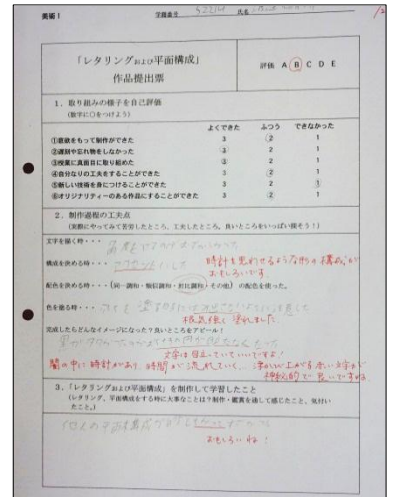 美術1 学籍番号 氏名
「レタリングおよび平面構成」
作品提出票
評価 A B C D E
1. 取り組みの様子を自己評価
(数字に○をつけよう)
よくできた ふつう できなかった
①意欲をもって制作ができた 3 2 1
②遅刻や忘れ物をしなかった 3 2 1
③授業に真面目に取り組めた 3 2 1
④自分なりの工夫をすることができた 3 2 1
⑤新しい技術を身につけることができた 3 2 1
⑥オリジナリティーのある作品にすることができた 3 2 1
2. 制作過程の工夫点
(実際にやってみて苦労したところ、工夫したところ。良いところをいっぱい探そう!)
文字を描く時・・・
構成を決める時・・・ アクセントにした
時計を思わせるような形の構成が
おもしろいです。
配色を決める時・・・(同一調和・類似調和・対比調和・その他)の配色を使った。
色を塗る時・・・
根気強く塗れました。
完成したらどんなイメージになった?良いところをアピール!
文字は目立っていていいですよ!
闇の中に時計があり、時間が流れていく… 浮かび上がる赤い文字が
神秘的で良いですね
3. 「レタリングおよび平面構成」を制作して学習したこと
(レタリング、平面構成をする時に大事なことは?制作・鑑賞を通して感じたこと、気付い
たこと。)
他人の平面構成が
おもしろいね!